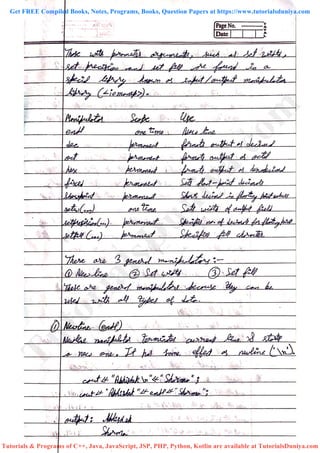 Get FREE Compiled Books, Notes, Programs, Books, Question Papers at https://www.tutorialsduniya.com
Page No.
Date
Those with parameter arguments, such as set width,
set precision and set fill are found in a
special library known as input/output manipulator
library (<iomanip>).
Manipulator Scope Use
endl one time New line
dec permanent formats output as decimal
oct permanent formats output as octal
hex permanent formats output as hexadecimal
fixed permanent Sets float-point decimals
showpoint permanent Shows decimal in floating
setw(m) one time Sets width of output fields
setprecision(m) permanent Specifies no. of decimals for floating
setfill(m) permanent Specifies fill character
There are 3 general manipulators :-
① New line ② Set width ③ Set fill
These are general manipulators because they can be
used with all types of data.
① Newline (endl)
Newline manipulator terminates current line & starts
a new one. It has same effect as newline ('\n').
cout << "Abhishek \n" << "Sharma" ;
cout << "Abhishek" << endl << "Sharma" ;
output : Abhishek
Sharma
Tutorials & Programs of C++, Java, JavaScript, JSP, PHP, Python, Kotlin are available at TutorialsDuniya.com